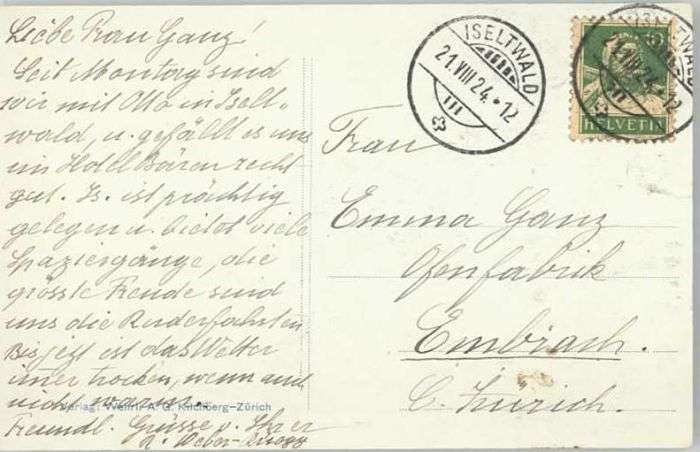 Liebe Frau Ganz!
Seit Montag sind
wir mit Otto in Iselt-
wald, u. gefällt es uns
im Hotel Bären recht
gut. Is. ist prächtig
gelegen u. bietet viele
Spaziergänge, die
grösste Freude sind
uns die Ruderfahrten
Bis jetzt ist das Wetter
imer trocken, wenn auch
nicht warm.
Freundl. Grüsse v. Ihrer
R. Weber-
Verlag: Wehrli A. G. Kilchberg-Zürich
ISELTWALD
21.VIII.24.-12
HELVETIA
Frau
Emma Ganz
Ofenfabrik
Embrach.
C. Zürich.